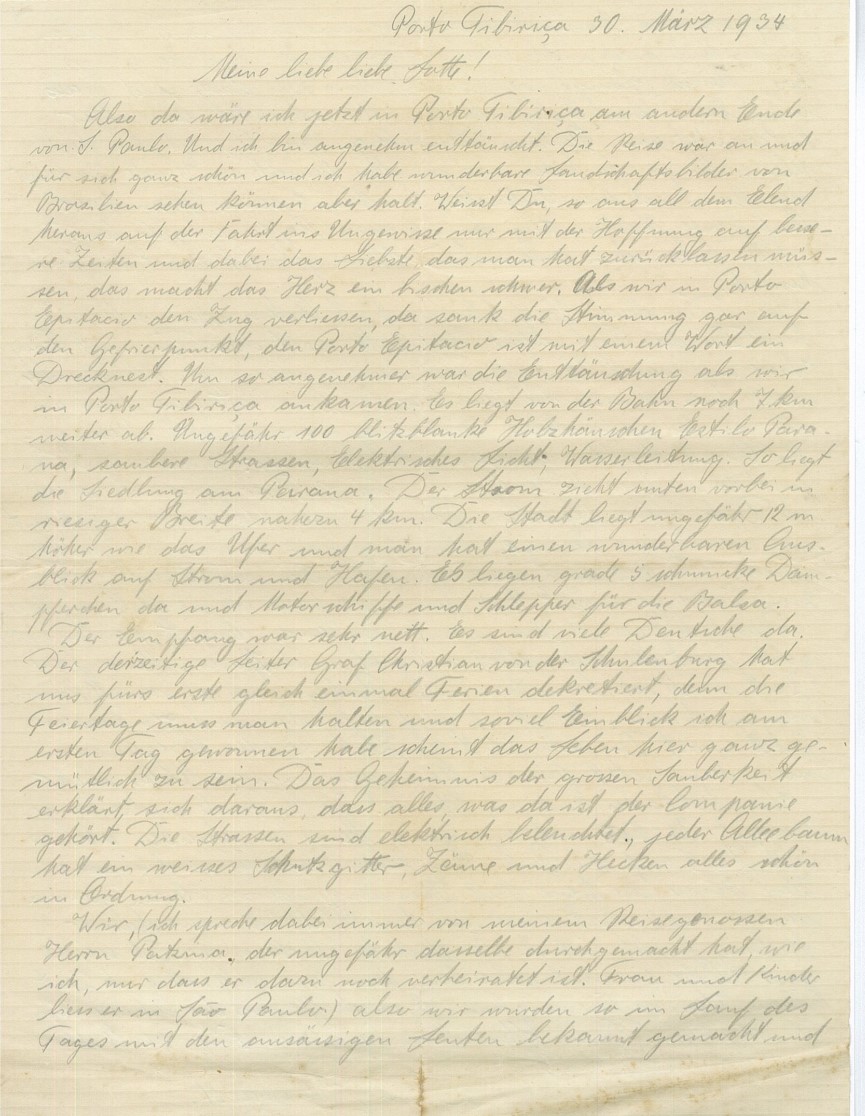 Porto Tibiriça 30. März 1934
Meine liebe liebe Lotte!
Also da wäre ich jetzt in Porto Tibiriça am andern Ende
von S. Paulo. Und ich bin angenehm enttäuscht. Die Reise war an und
für sich ganz schön und ich habe wunderbare Landschaftsbilder von
Brasilien sehen können aber halt. Weisst Du, so aus all dem Elend
heraus auf der Fahrt ins Ungewisse nur mit der Hoffnung auf besse-
re Zeiten und dabei das Liebste, das man hat zurücklassen müs-
sen, das macht das Herz ein bischen schwer. Als wir in Porto
Epitacio den Zug verliessen, da sank die Stimmung gar auf
den Gefrierpunkt, den Porto Epitacio ist mit einem Wort ein
Drecknest. Um so angenehmer war die Enttäuschung als wir
in Porto Tibiriça ankamen. Es liegt von der Bahn noch 7 km
weiter ab. Ungefähr 100 blitzblanke Holzhäuschen Estilo Para-
na, saubere Strassen, Elektrisches Licht, Wasserleitung. So liegt
die Siedlung am Parana. Der Strom zieht unten vorbei in
riesiger Breite nahezu 4 km. Die Stadt liegt ungefähr 12 m
höher wie das Ufer und man hat einen wunderbaren Aus-
blick auf Strom und Hafen. Es liegen grade 5 schmucke Dam-
pferchen da und Motorschiffe und Schlepper für die Balsa.
Der Empfang war sehr nett. Es sind viele Deutsche da.
Der derzeitige Leiter Graf Christian von der Schulenburg hat
uns fürs erste gleich einmal Ferien dekretiert, denn die
Feiertage muss man halten und soviel Einblick ich am
ersten Tag gewonnen habe scheint das Leben hier ganz ge-
mütlich zu sein. Das Geheimnis der grossen Sauberkeit
erklärt sich daraus, dass alles, was da ist der Companie
gehört. Die Strassen sind elektrisch beleuchtet, jeder Alleebaum
hat ein weisses Schutzgitter, Zäune und Hecken alles schön
in Ordnung.
Wir, (ich spreche dabei immer von meinem Reisegenossen
Herrn der ungefähr dasselbe durchgemacht hat, wie
ich, nur dass er dazu noch verheiratet ist. Frau und Kinder
liess er in São Paulo) also wir wurden so im Lauf des
Tages mit den ansässigen Leuten bekannt gemacht und